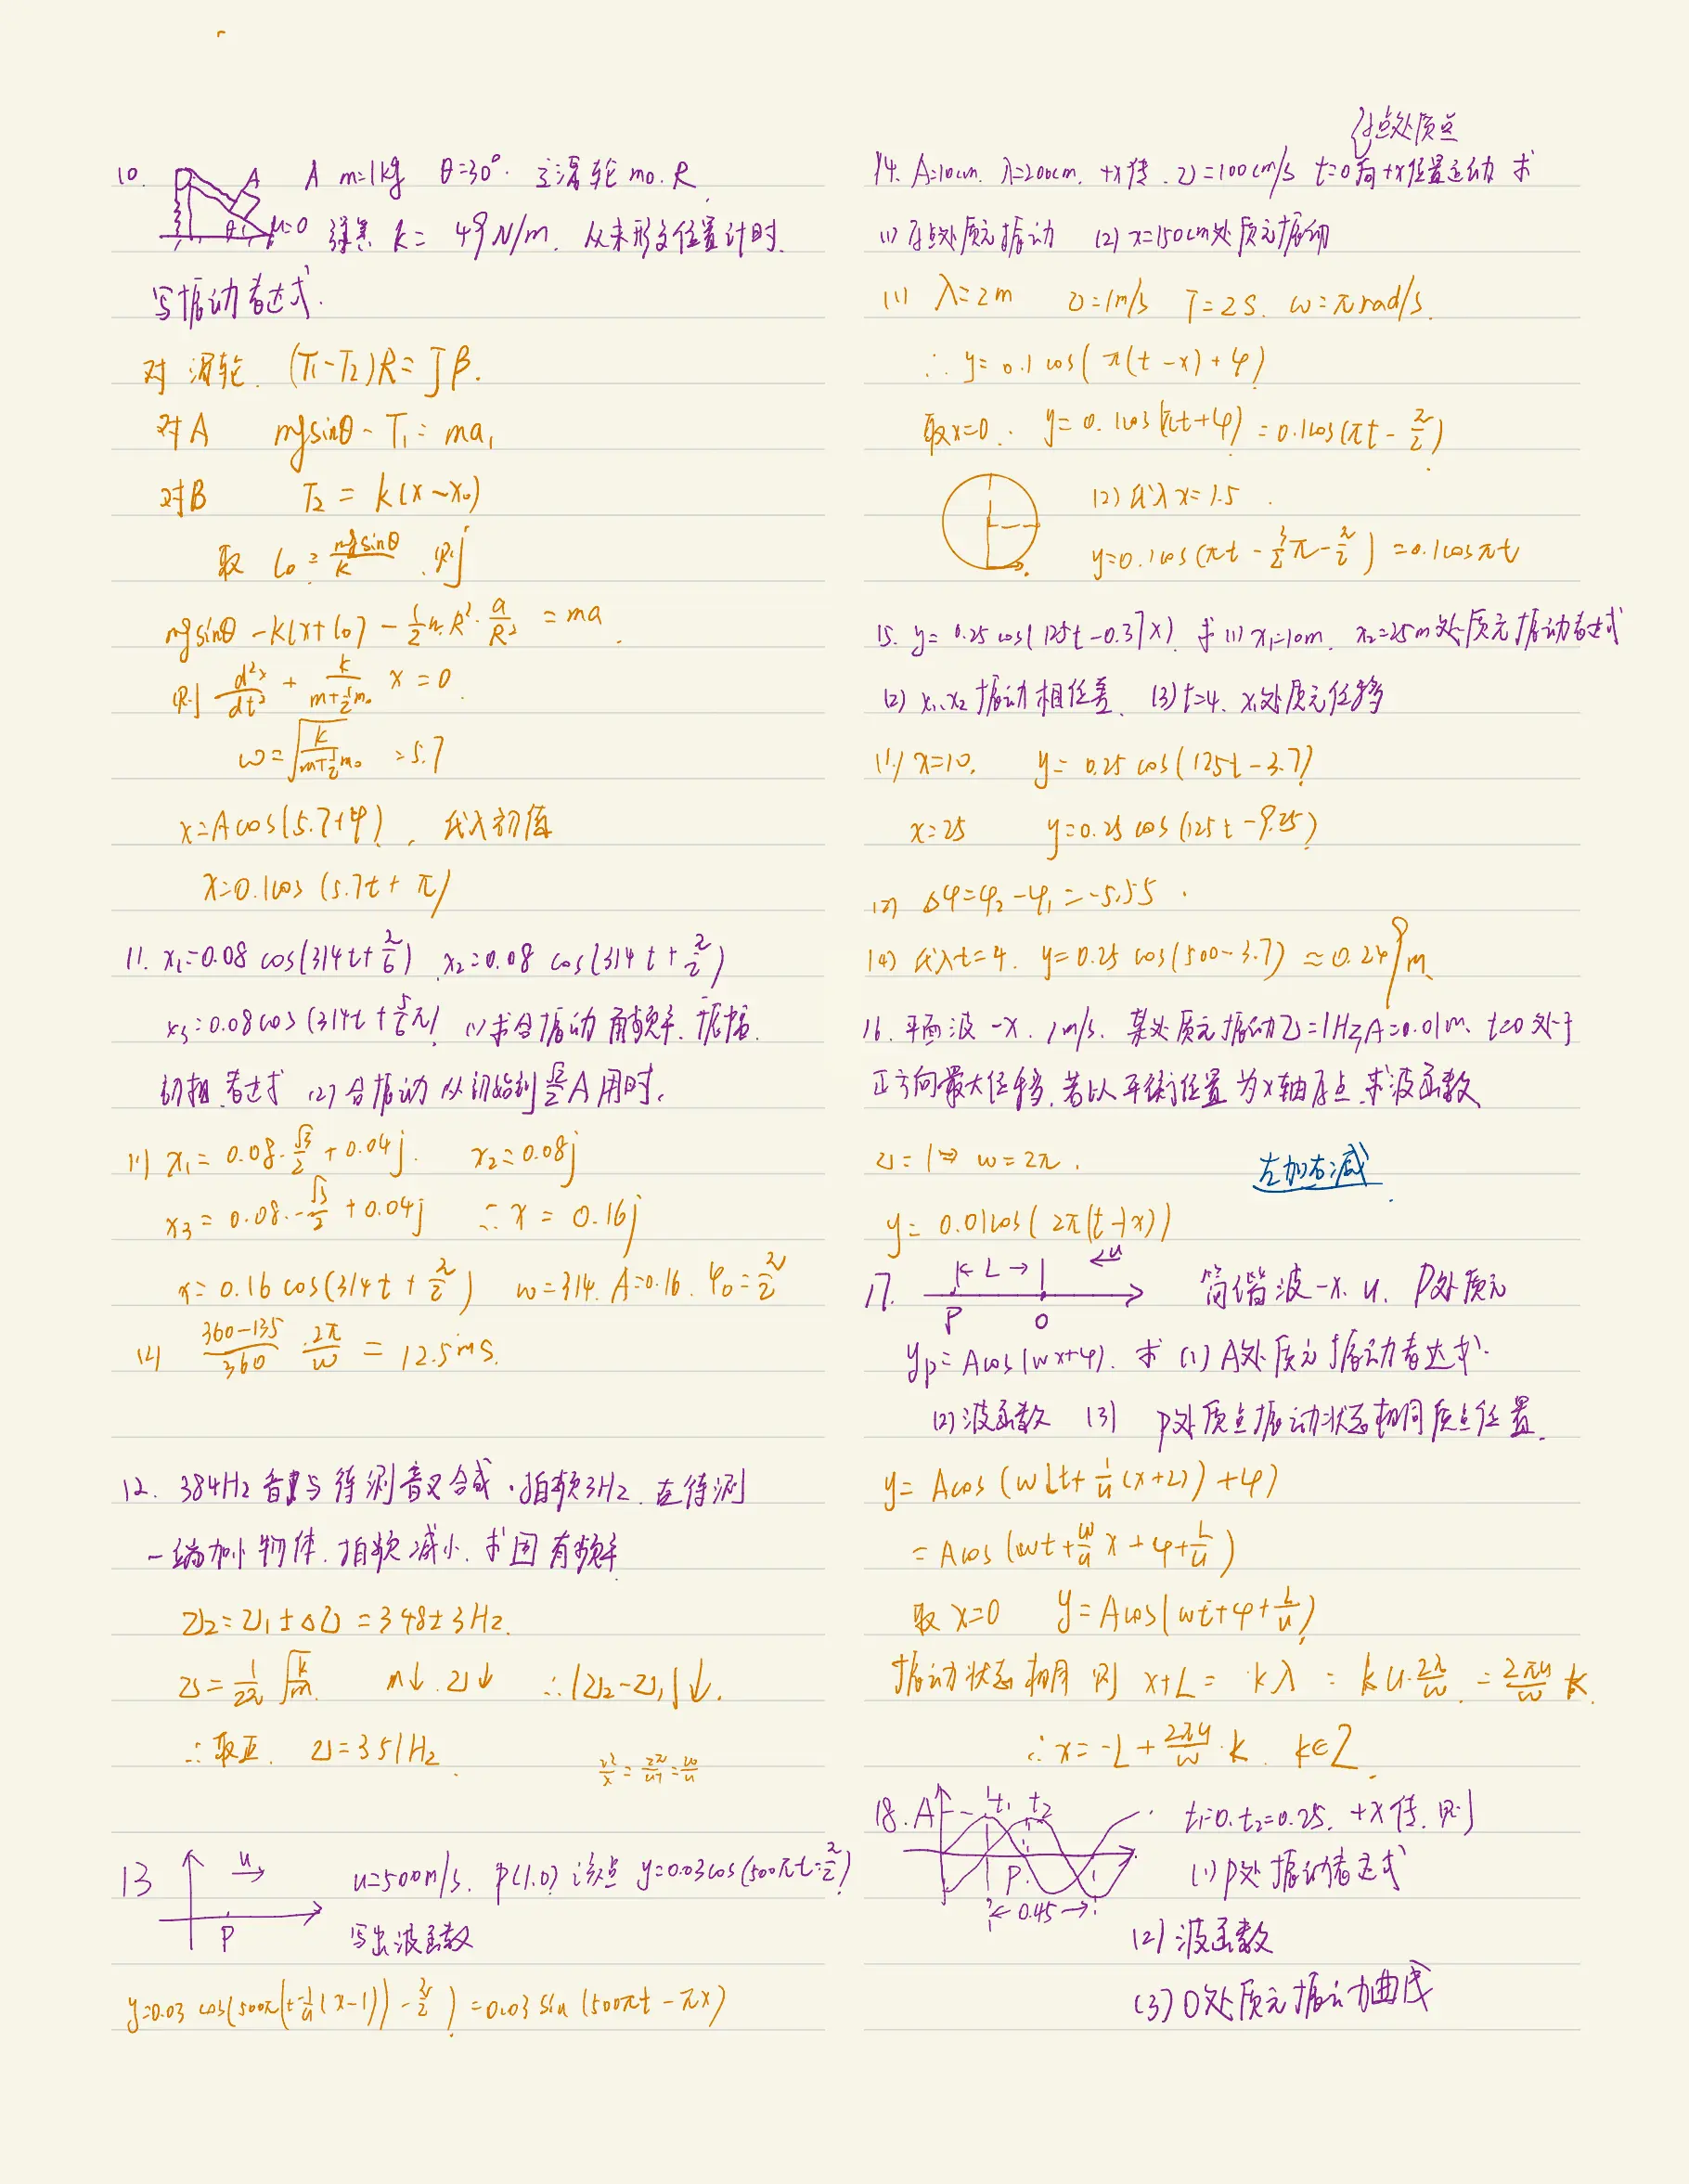 10. A m=1kg θ=30°. 定滑轮 m₀. R
A θ μ=0 弹簧 k= 49N/m. 从未形变位置计时.
写振动表达式.
对 滑轮. (T₁-T₂)R=Jβ.
对A mgsinθ-T₁=ma₁
对B T₂=k(x-x₀)
取 l₀=mgsinθ/k .则
mgsinθ-k(x+l₀)-1/2m₀R²·a/R²=ma
则 d²x/dt²+k/(m+1/2m₀) x=0
ω=√(k/(m+1/2m₀)) =5.7
x=Acos(5.7+φ), 代入初值
x=0.1cos(5.7t+π)
11. x₁=0.08 cos(314t+π/6) x₂=0.08 cos(314t+π/2)
x₃=0.08cos(314t+5/6π) (1)求合振动 角频率. 振幅.
初相.表达式 (2)合振动从初始到√2/2A用时.
(1) x₁=0.08·√3/2+0.04j. x₂=0.08j
x₃=0.08·-√3/2+0.04j ∴x=0.16j
x=0.16 cos(314t+π/2) ω=314. A=0.16. φ₀=π/2
(2) (360-135)/360 · 2π/ω = 12.5ms.
12. 384Hz 音叉与待测音叉合成.拍频3Hz.在待测
一端加小物体.拍频减小.求固有频率
ν₂=ν₁±Δν=348±3Hz.
ν=1/2π √(k/m) m↓.ν↓ ∴|ν₂-ν₁|↓.
∴取正. ν=351Hz.
=2π/uT=ω/u
13 u u=500m/s. P(1.0) 该点 y=0.03cos(500πt-π/2)
P 写出波函数
y=0.03 cos(500π(t-1/u(x-1))-π/2)=0.03 sin(500πt-πx)
原点处质点
14. A=10cm. λ=200cm. +x传. υ=100cm/s t=0向+x位置运动 求
(1) 原点处质元振动 (2) x=150cm处质元振动
(1) λ=2m υ=1m/s T=2s. ω=πrad/s.
∴ y=0.1cos(π(t-x)+φ)
取x=0. y=0.1cos(πt+φ)=0.1cos(πt-π/2)
(2)代入x=1.5
y=0.1cos(πt-3/2π-π/2)=0.1cosπt
15. y=0.25cos(125t-0.37x) 求(1) x₁=10m. x₂=25m处质元振动表达式
(2) x₁、x₂振动相位差. (3)t=4. x₁处质元位移
(1) x=10. y=0.25cos(125t-3.7)
x=25 y=0.25cos(125t-9.25)
(2) Δφ=φ₂-φ₁=-5.55.
(4) 代入t=4. y=0.25cos(500-3.7)≈0.249m
16. 平面波 -x. 1m/s. 某处质元振动ν=1Hz, A=0.01m. t=0处于
正方向最大位移.若以平衡位置为x轴原点.求波函数
ν=1⇒ω=2π. 左加右减
y=0.01cos(2π(t+x))
L u
17. P O 简谐波-x. u. P处质元
yₚ=Acos(ωx+φ). 求(1)A处质元振动表达式.
(2)波函数 (3) P处质点振动状态相同质点位置.
y=Acos(ω[t+1/u(x+L))+φ)
=Acos(ωt+ω/u x+φ+L/u)
取x=0 y=Acos(ωt+φ+L/u)
振动状态相同 则 x+L=kλ=ku·2π/ω=2πu/ω k
∴x=-L+2πu/ω·k. k∈Z
18. A t₁ t₂ t₁=0. t₂=0.25. +x传.则
P (1)P处振动表达式
0.45
(2)波函数
(3)O处质元振动曲线